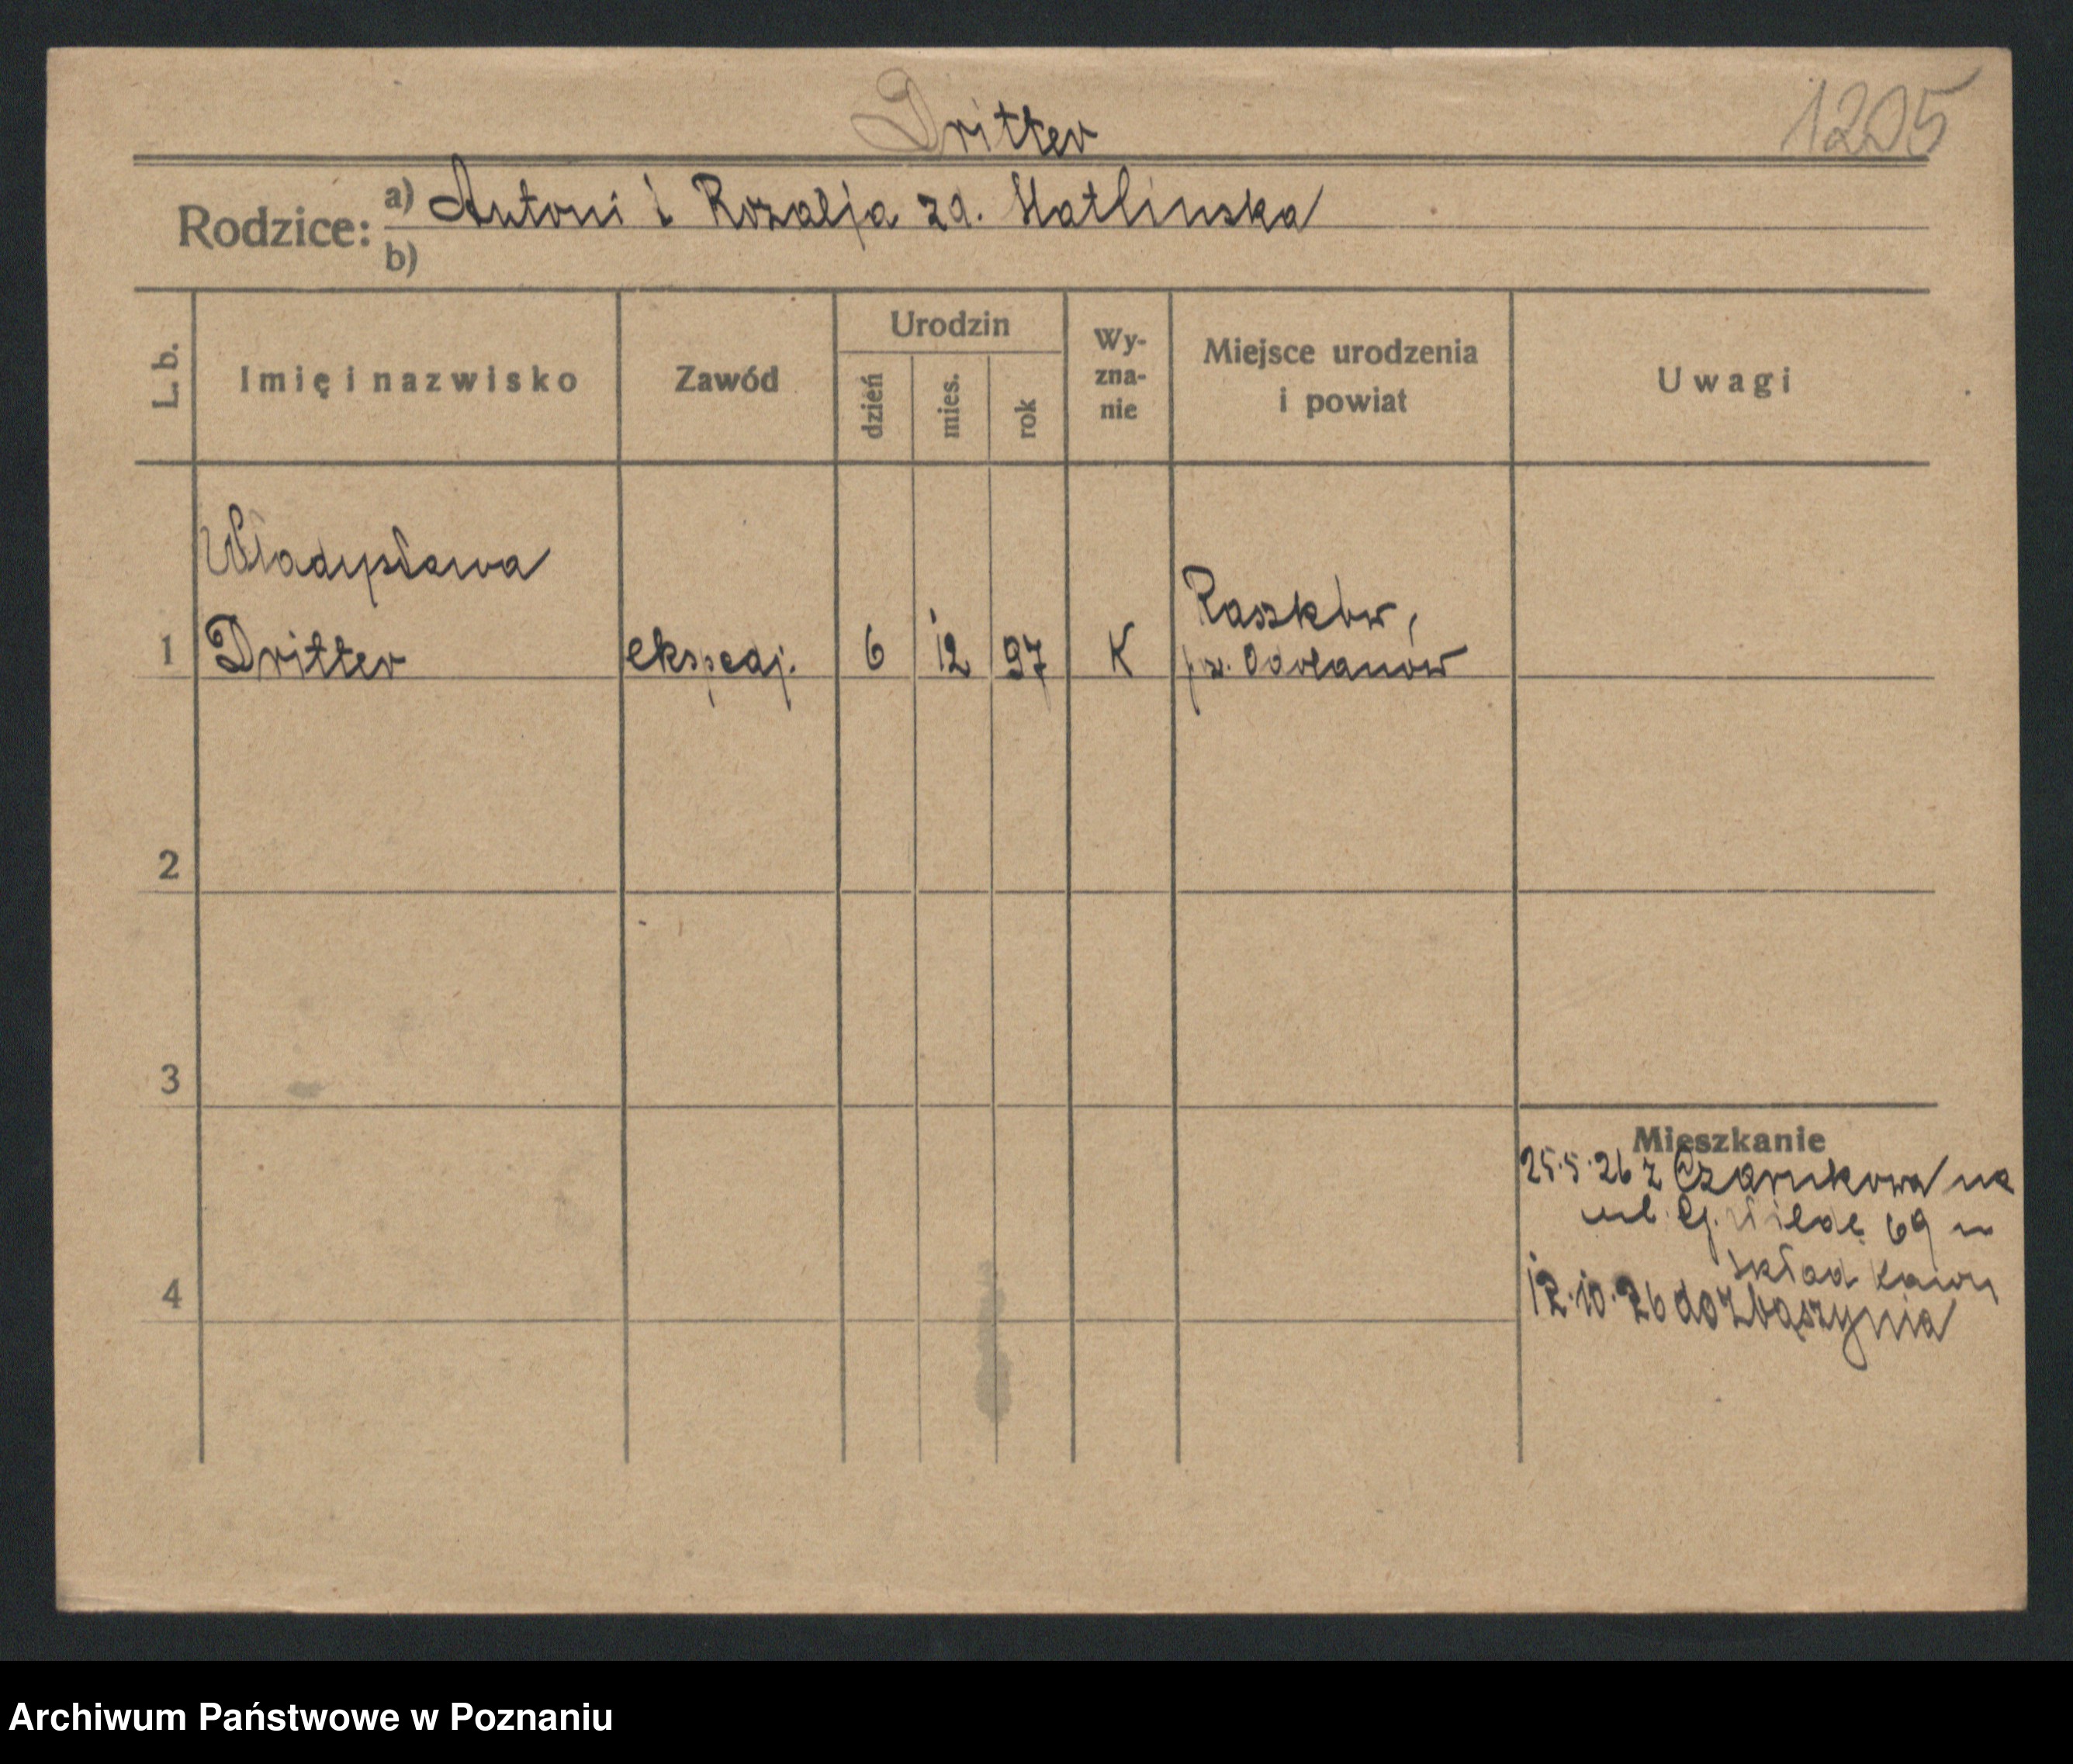 Dritter
1205
Rodzice: a) Antoni i Rozalja zd. Matlinska
b)
L. b.
Imię i nazwisko
Zawód
Urodzin
dzień
mies.
rok
Wy-
zna-
nie
Miejsce urodzenia
i powiat
Uwagi
Władysława
1 Dritter ekspedj. 6 12 97 K Raszków,
pw. Odolanów
2
3
4
Mieszkanie
25.5.26 z Czarnkowa na
ul. Gj. Wildę 69 w
skład kawy
12.10.26 do Zbąszynia
Archiwum Państwowe w Poznaniu